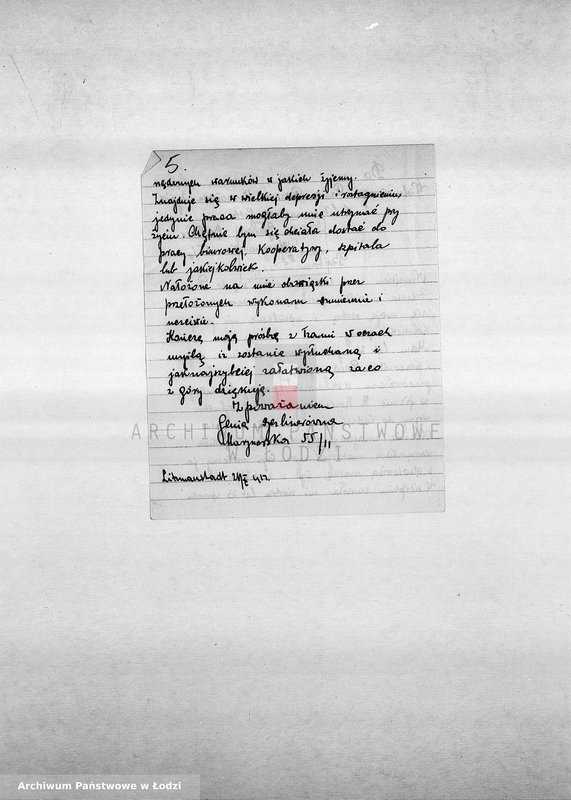 5.
nędznych warunków w jakich żyjemy.
Znajduje się w wielkiej depresji i rostargnieniu,
jedynie praca mogłaby mnie utrzymać przy
życiu. Chętnie bym się chciała dostać do
pracy biurowej, Kooperatywy, szpitala
lub jakiejkolwiek.
Nałożone na mnie obowiązki przez
przełożonych wykonam sumiennie i
uczciwie.
Kończę moją prośbę z łzami w oczach
myślą iż zostanie wysłuchaną i
jaknajszybciej załatwioną za co
z góry dziękuję.
Z poważaniem
Genia
Marynarska 55/11
Litzmannstadt
ARCHIWUM PAŃSTWOWE
W ŁODZI
Archiwum Państwowe w Łodzi